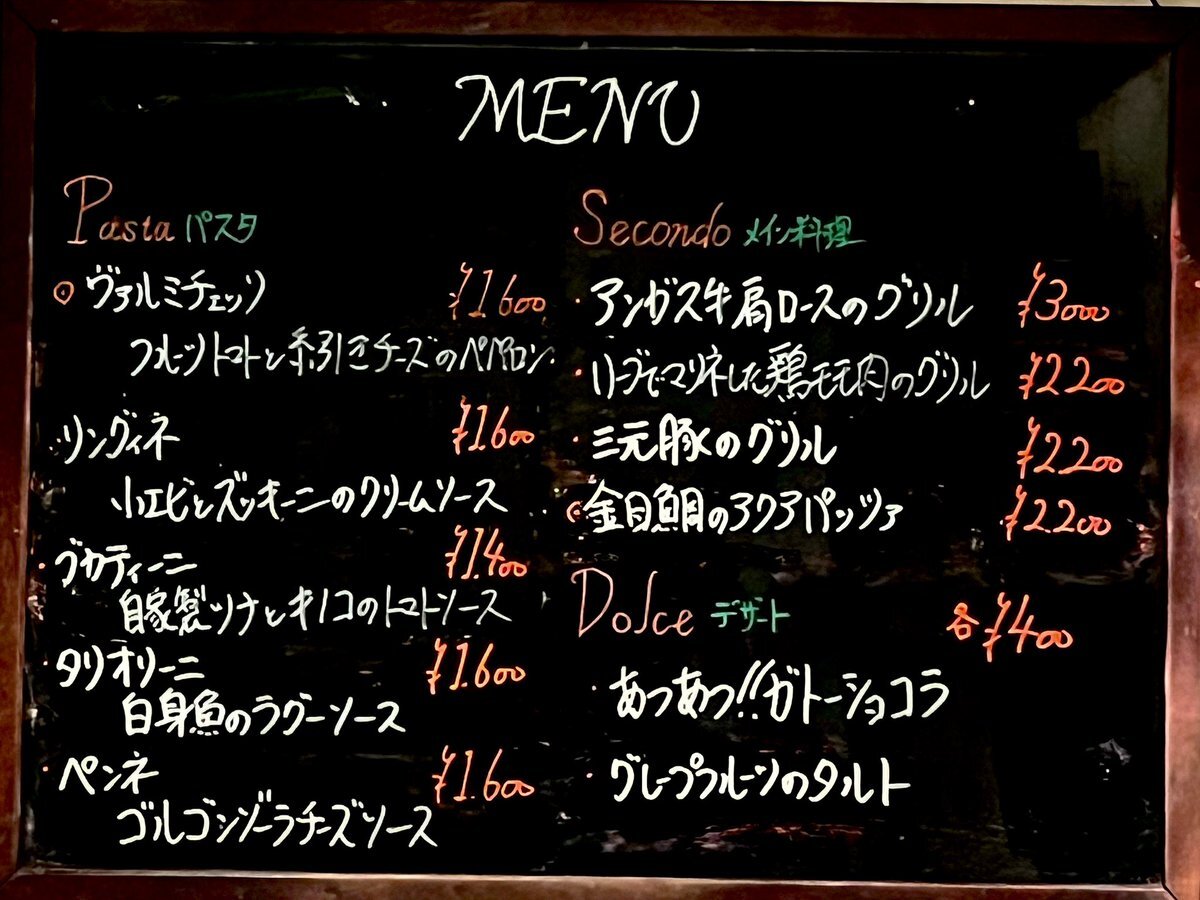 MENU
Pasta パスタ
◎ ヴァルミチェッリ ¥1600
フルーツトマトと糸引きチーズのペペロン
・リングィネ ¥1600
小エビとズッキーニのクリームソース
・ブカティーニ ¥1.400
自家製ツナとキノコのトマトソース
・タリオリーニ ¥1.600
白身魚のラグーソース
・ペンネ ¥1.600
ゴルゴンゾーラチーズソース
Secondo メイン料理
・アンガス牛肩ロースのグリル ¥3000
・ハーブでマリネした鶏モモ肉のグリル ¥2200
・三元豚のグリル ¥2200
◎金目鯛のアクアパッツァ ¥2.200
Dolce デザート 各¥400
・あつあつ!!ガトーショコラ
・グレープフルーツのタルト